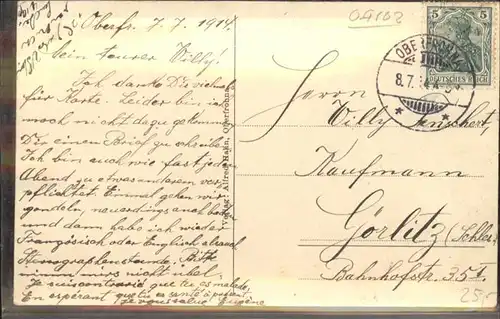 Oberfr. 7.7.1914.
Mein teurer Willy!
Ich danke Dir vielmal
für Karte. Leider bin ich
noch nicht dazu gekommen
Dir einen Brief zu schreiben
Ich bin auch wie fast jeden
Abend zu etwas anderem ver-
pflichtet. Einmal gehen wir
gondeln, neuerdings auch baden
und dann habe ich wieder
Französisch oder Englisch
Stenographenstunde. Bitte
nimm mirs nicht übel.
Je suis contrarié que tu es malade,
En espérant que tu es santé à présent
je vous salue Eugène
Verlag: Alfred Hahn, Oberfrohna
04102
5
DEUTSCHES REICH
OBERFROHNA
8.7.14
Herrn
Willy
Kaufmann
Görlitz (Schles.
Bahnhofstr. 35 I.
25,-